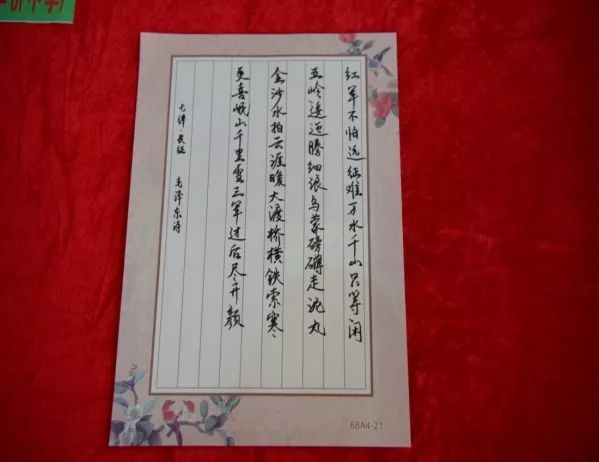 红军不怕远征难万水千山只等闲
五岭逶迤腾细浪乌蒙磅礴走泥丸
金沙水拍云涯暖大渡桥横铁索寒
更喜岷山千里雪三军过后尽开颜
七律·长征 毛泽东诗
68A4-21